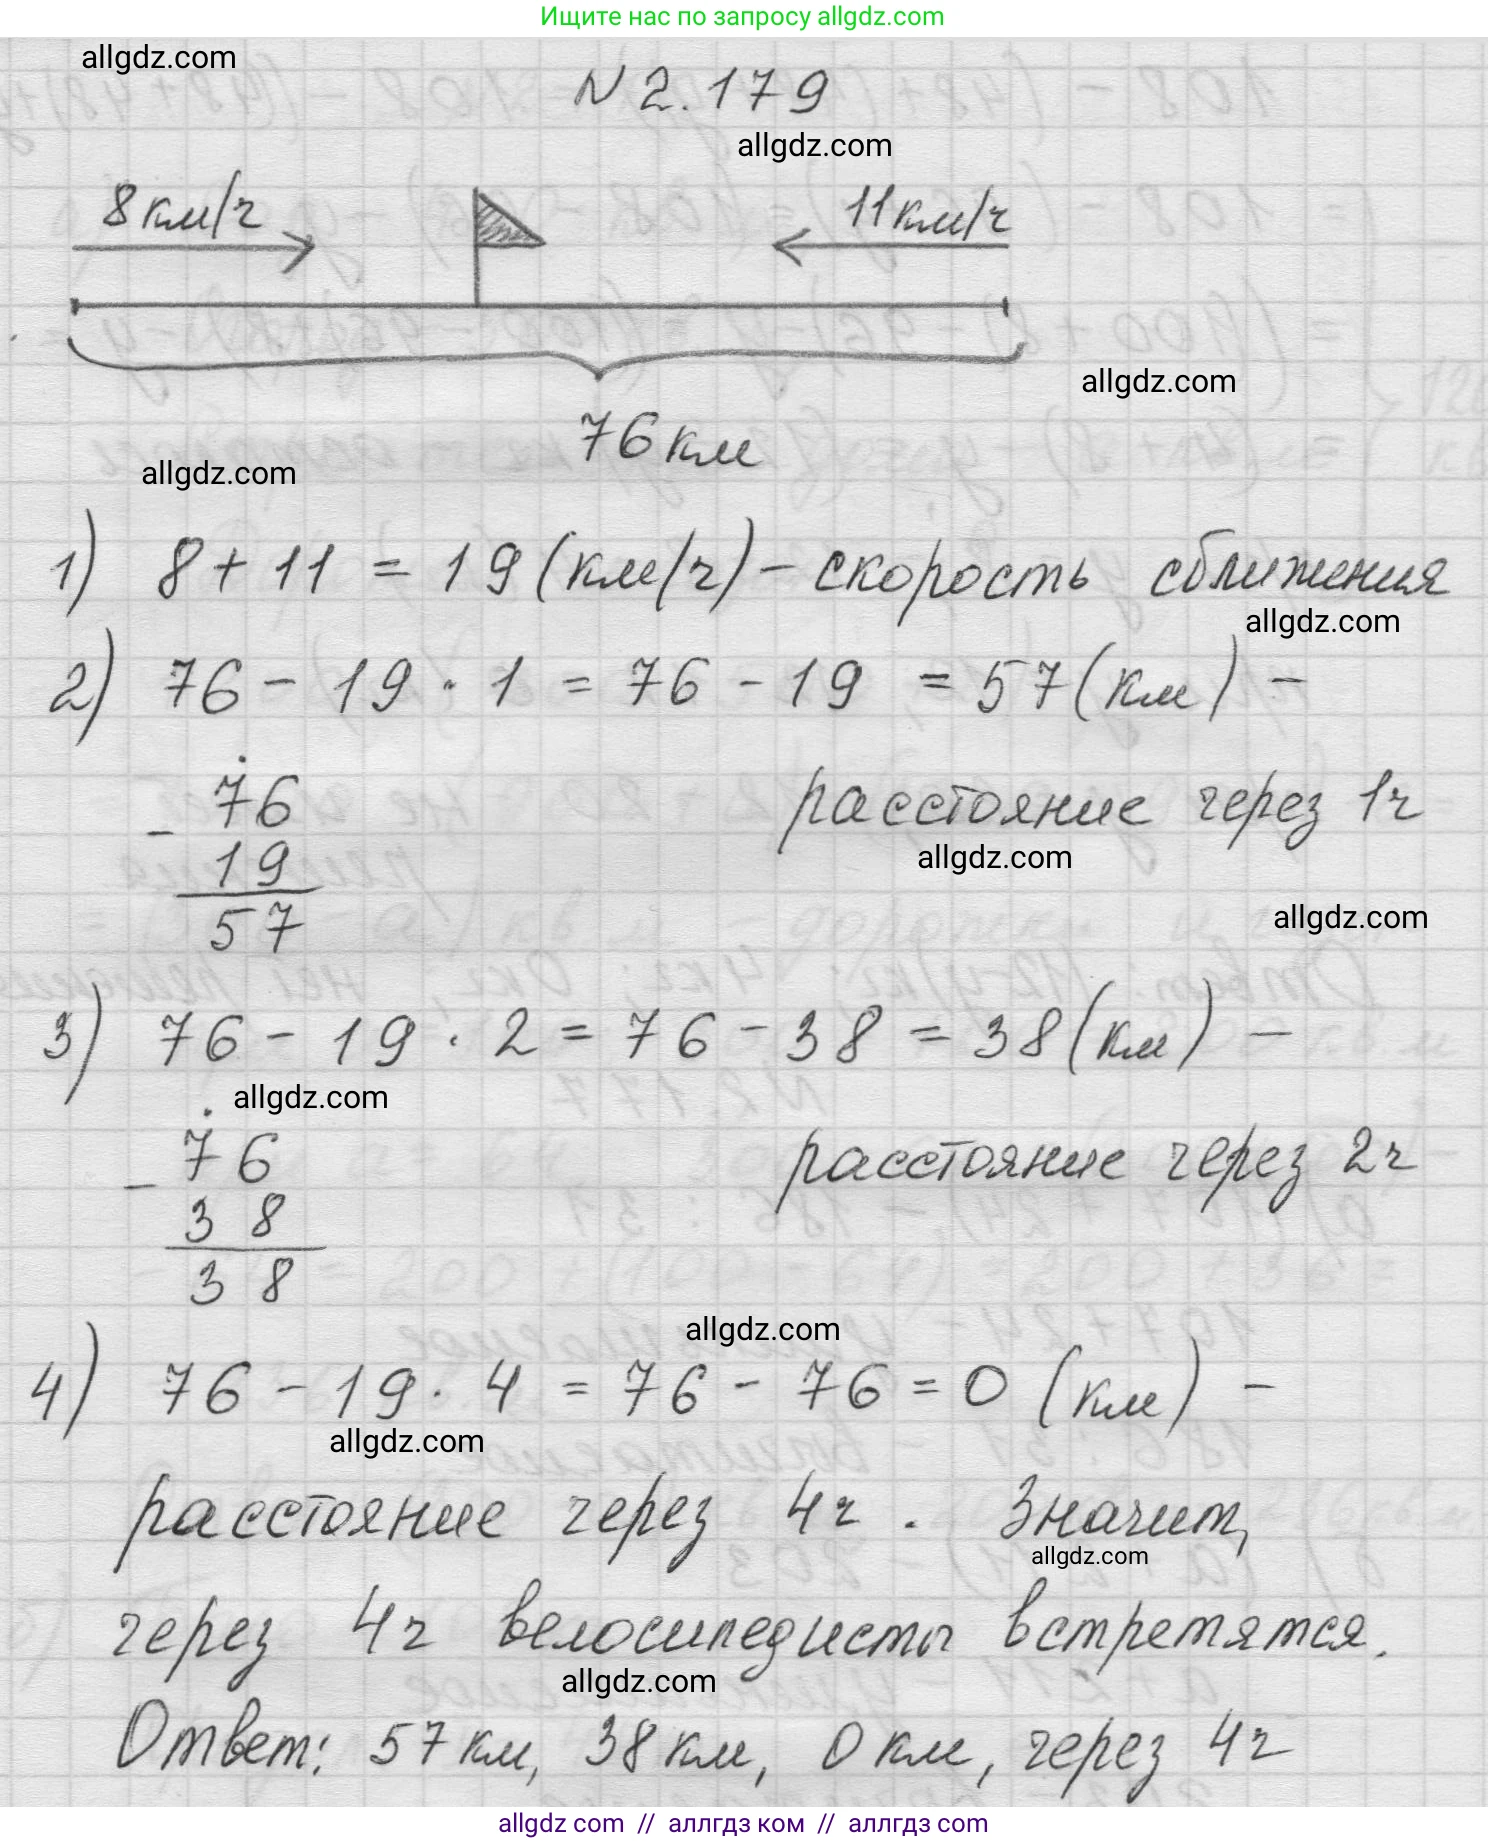 Ищите нас по запросу allgdz.com
allgdz.com
N 2.179
allgdz.com
8 км/ч
11 км/ч
allgdz.com
76 км
allgdz.com
1) 8 + 11 = 19 (км/ч) - скорость сближения
allgdz.com
2) 76 - 19 · 1 = 76 - 19 = 57 (км) -
76
- 19
57
расстояние через 1ч
allgdz.com
allgdz.com
3) 76 - 19 · 2 = 76 - 38 = 38 (км) -
allgdz.com
76
- 38
38
расстояние через 2ч
allgdz.com
4) 76 - 19 · 4 = 76 - 76 = 0 (км) -
allgdz.com
расстояние через 4ч. Значит,
allgdz.com
через 4ч велосипедисты встретятся.
allgdz.com
Ответ: 57 км, 38 км, 0 км, через 4ч
allgdz com // аллгдз ком // аллгдз com